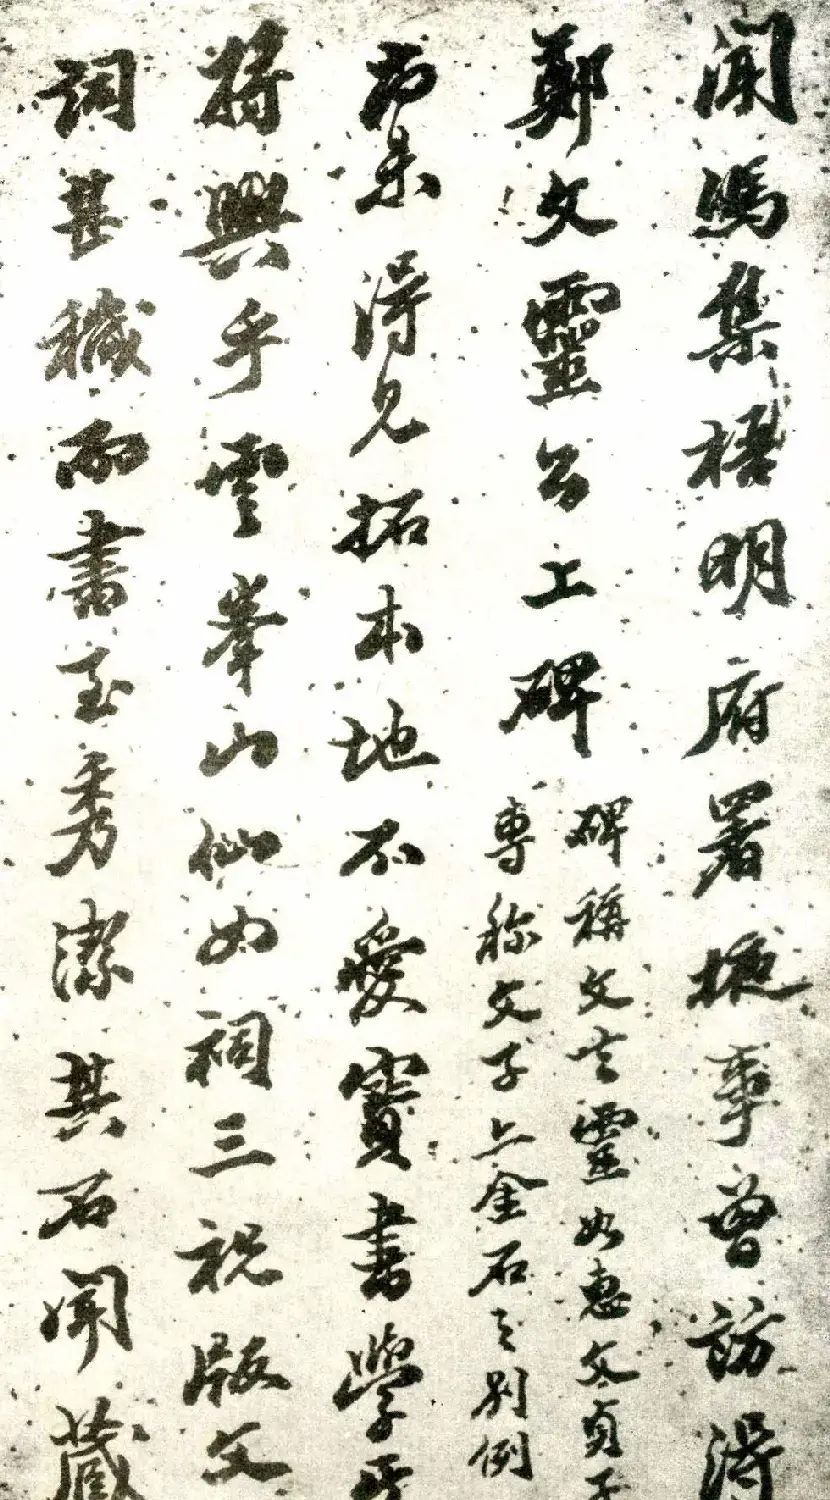 聞馮集梧明府署掖事曾訪得
鄭文靈公上碑
碑稱文靈如惠文貞子
專称文子上金石之別例
而未得見拓本地不愛寶書學其
將興乎雲峯山仙如祠三祝版文
詞甚穢而書至秀潔其石聞藏